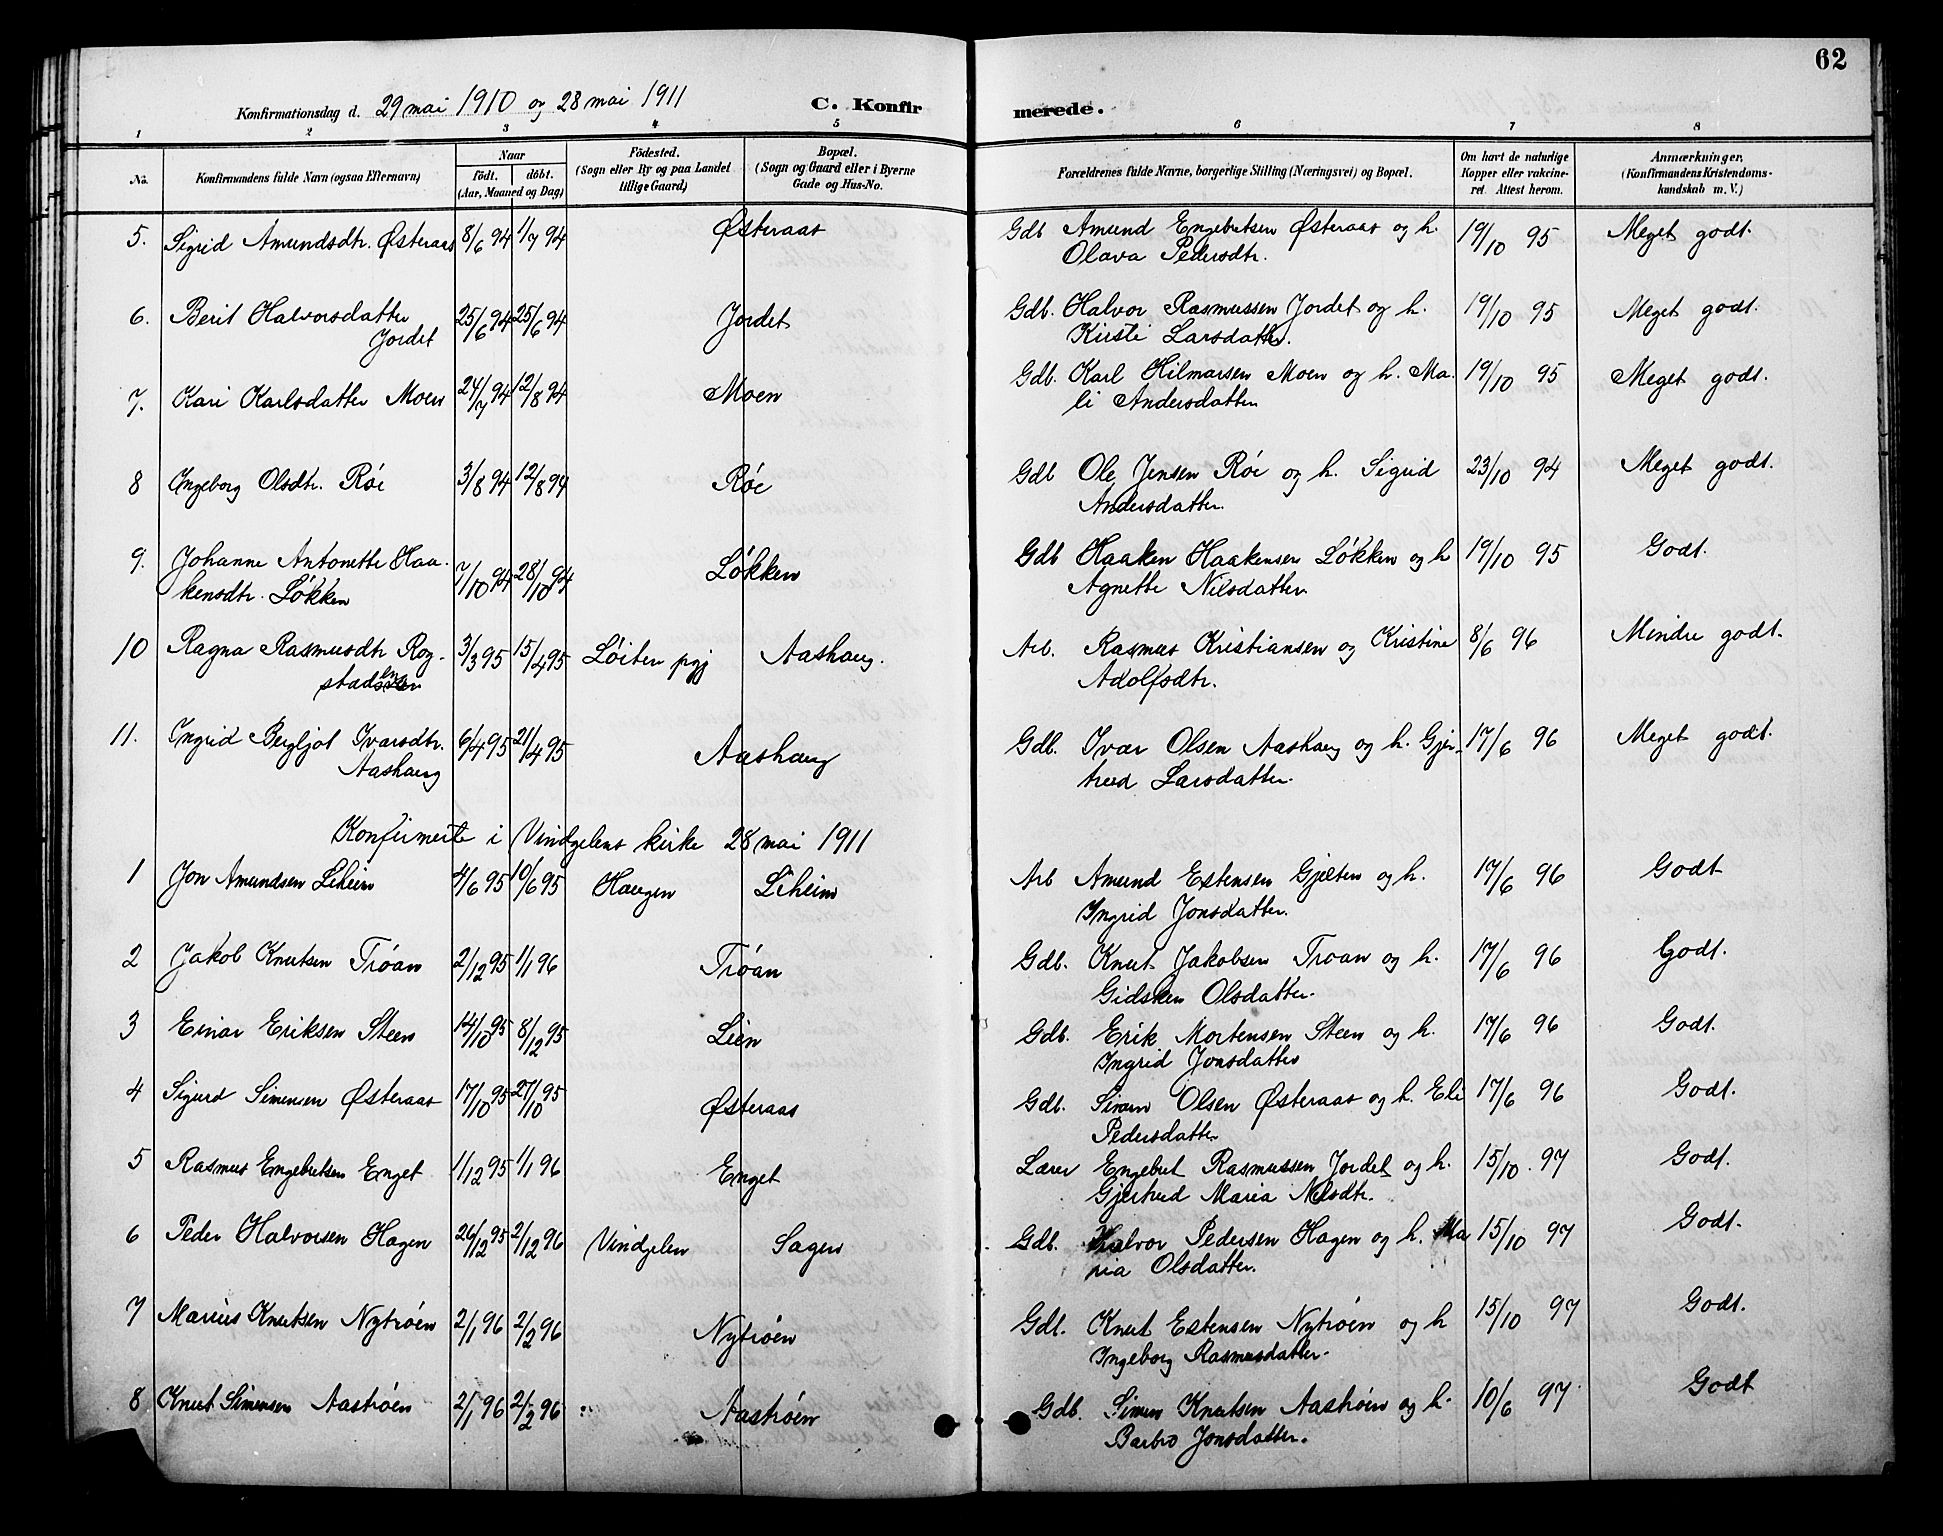 62
Konfirmationsdag d. 29 mai 1910 og 28 mai 1911 C. Konfirmerede.
1 2 3 4 5 6 7 8
No. Konfirmandens fulde Navn (ogsaa Efternavn) Naar födt. döbt. (Aar, Maaned og Dag) Födested. (Sogn eller By og paa Landet tillige Gaard) Bopæl. (Sogn og Gaard eller i Byerne Gade og Hus-No. Forældrenes fulde Navne, borgerlige Stilling (Næringsvei) og Bopæl. Om havt de naturlige Kopper eller vakcineret. Attest herom. Anmærkninger. (Konfirmandens Kristendomskundskab m. V.)
5. Sigrid Amundsdtr. Østeraas 8/6 94 1/7 94 Østeraas Gdb Amund Engebretsen Østeraas og h. 19/10 95 Meget godt.
Olava Pedersdtr.
6. Berit Halvorsdatter 25/6 94 25/6 94 Jordet Gdb. Halvor Rasmussen Jordet og h. 19/10 95 Meget godt.
Jordet Kirsti Larsdatter.
7. Kari Karlsdatter Moen 24/7 94 12/8 94 Moen Gdb. Karl Hilmarsen Moen og h. Ma- 19/10 95 Meget godt.
li Andersdatter
8 Ingeborg Olsdtr. Röe 3/8 94 12/8 94 Röe Gdb Ole Jensen Röe og h. Sigrid 23/10 94 Meget godt.
Andersdatter.
9. Johanne Antonette Haa- 7/10 94 28/10 94 Løkken Gdb Haaken Haakensen Løkken og h 19/10 95 Godt.
kensdtr. Løkken Agnette Nilsdatter
10 Ragna Rasmusdtr Rog- 3/3 95 15/4 95 Løiten pgj Aashaug. Arb. Rasmus Kristiansen og Kristine 8/6 96 Mindre godt.
Adolfsdtr.
11. Ingrid Bergljot Ivarsdtr. 6/4 95 21/4 95 Aashaug Gdb. Ivar Olsen Aashaug og h. Gjer- 17/6 96 Meget godt.
Aashaug trud Larsdatter.
Konfirmerte i Vindgelens kirke 28 mai 1911
1 Jon Amundsen Liheim 4/6 95 10/6 95 Haugen Liheim Arb Amund Estensen Gjelten og h. 17/6 96 Godt
Ingrid Jonsdatter.
2 Jakob Knutsen Trøan 2/12 95 1/1 96 Trøan Gdb. Knut Jakobsen Trøan og h. 17/6 96 Godt.
Gidsken Olsdatter.
3 Einar Eriksen Steen 14/10 95 8/12 95 Lien Gdb. Erik Mortensen Steen og h. 17/6 96 Godt.
Ingrid Jonsdatter
4 Sigurd Simensen Østeraas 17/10 95 27/10 95 Østeraas Gdb. Simen Olsen Østeraas og h. Eli 17/6 96 Godt.
Pedersdatter
5 Rasmus Engebretsen Enget 1/12 95 1/1 96 Enget Lærer Engebret Rasmussen Jordet og h. 15/10 97 Godt.
Gjertrud Maria Nilsdtr.
6 Peder Halvorsen Hagen 26/12 95 2/12 96 Vindgelen Sagen Gdb. Halvor Pedersen Hagen og h. Ma 15/10 97 Godt.
ria Olsdatter.
7 Marius Knutsen Nytrøen 2/1 96 2/2 96 Nytrøen Gdb. Knut Estensen Nytrøen og h 15/10 97 Godt.
Ingeborg Rasmusdatter.
8 Knut Simensen Aastrøen 2/1 96 2/2 96 Aastrøen Gdb. Simen Knutsen Aastrøen og h. 10/6 97 Godt
Barbro Jonsdatter.